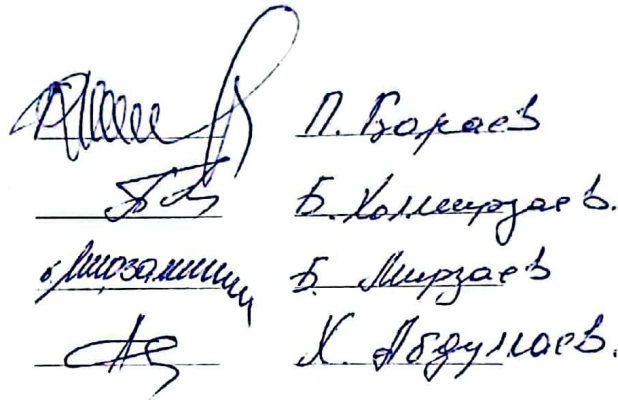 П. Бораев
Б. Холмирзаев.
Б. Мирзаев
Х. Абдуллаев.